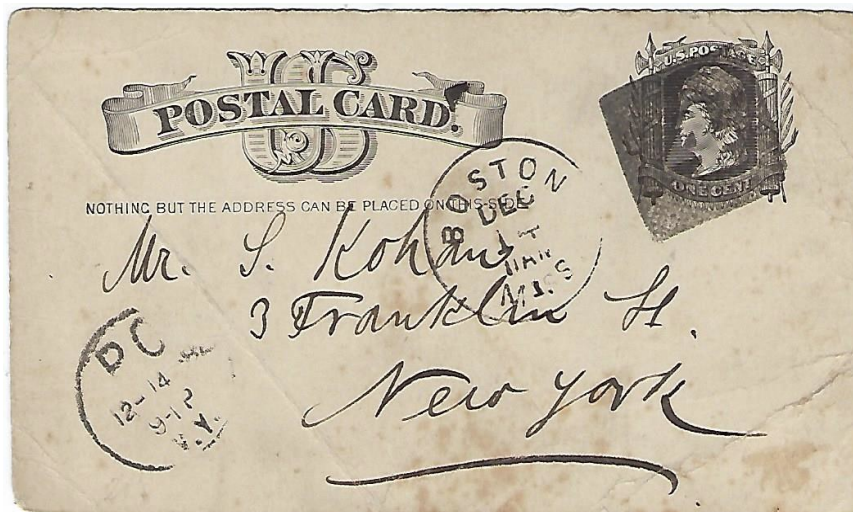 US
POSTAL CARD.
U.S. POSTAGE
ONE CENT
NOTHING BUT THE ADDRESS CAN BE PLACED ON THIS SIDE
BOSTON
DEC
MASS
Mr. S. Kohan
3 Franklin St.
New York
D C
12-14
9-12
N.Y.